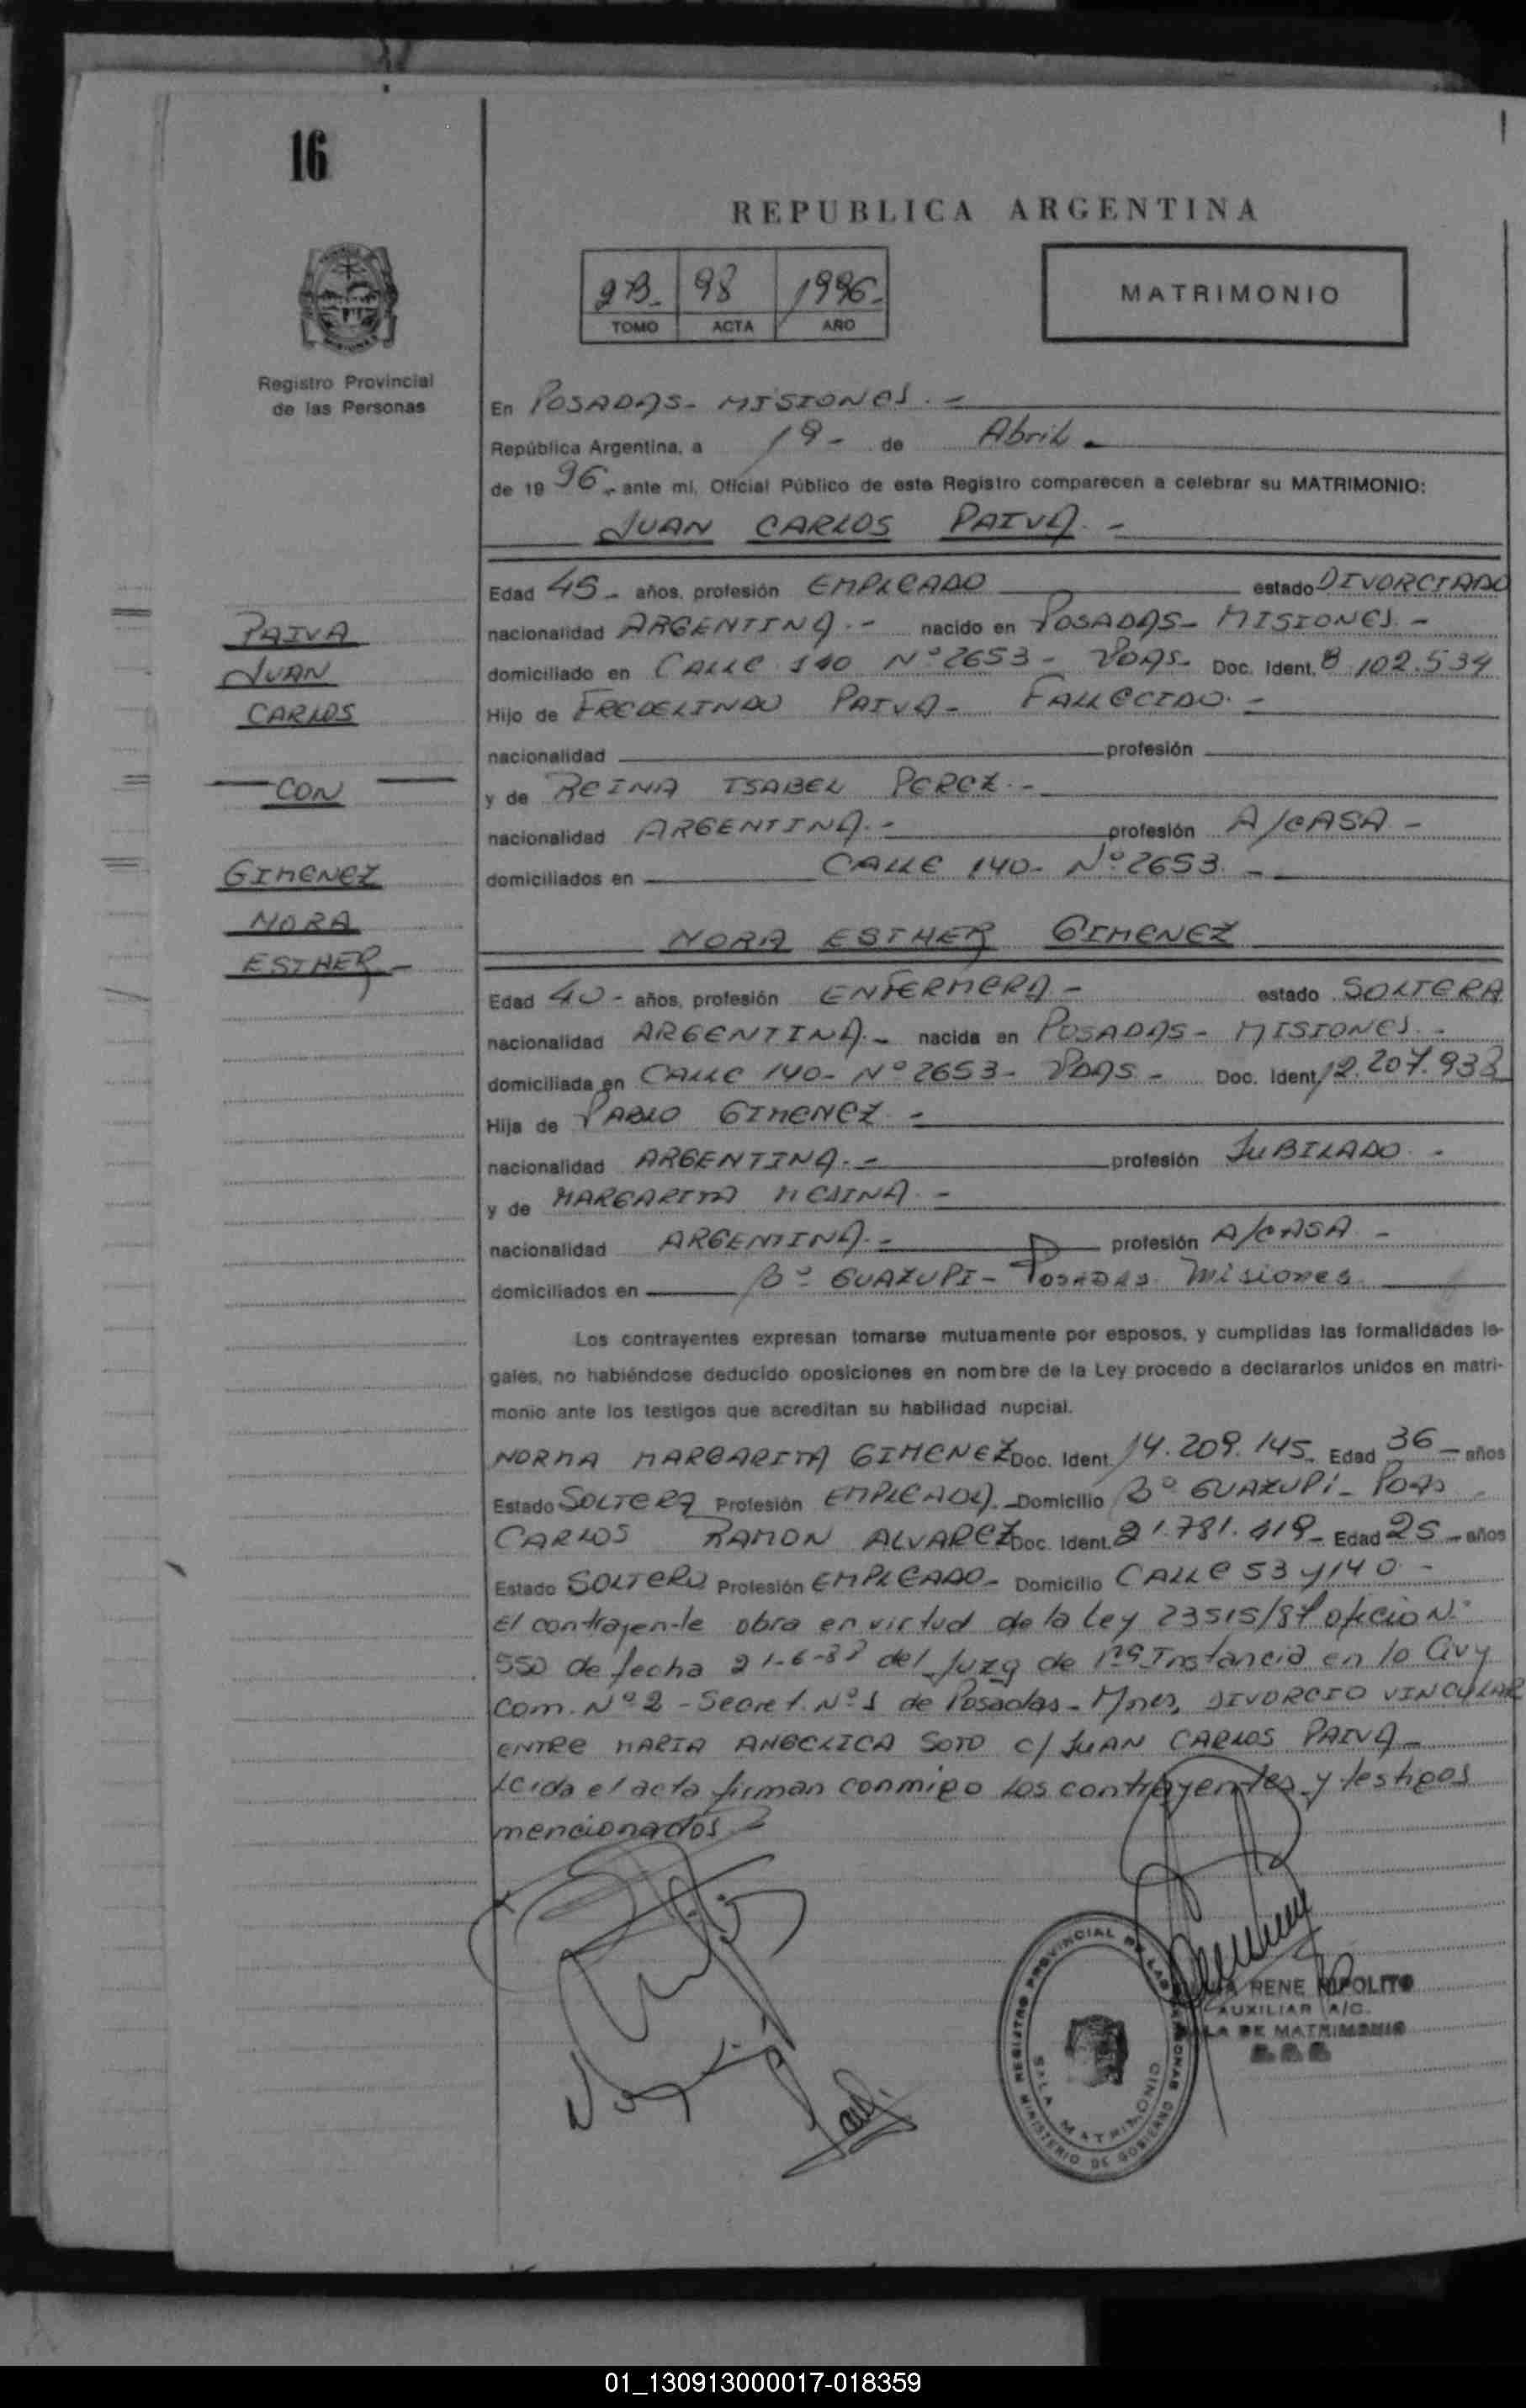 16
REPUBLICA ARGENTINA
2B- 98 1996-
TOMO ACTA AÑO
MATRIMONIO
Registro Provincial
de las Personas
En POSADAS- MISIONES.-
República Argentina, a 19- de Abril.
de 19 96- ante mi, Oficial Público de este Registro comparecen a celebrar su MATRIMONIO:
JUAN CARLOS PAIVA.-
Edad 45- años, profesión EMPLEADO estado DIVORCIADO
nacionalidad ARGENTINA.- nacido en POSADAS- MISIONES.-
domiciliado en CALLE 140 Nº 2653- PDAS- Doc. Ident. 8.102.534
Hijo de FREDELINDO PAIVA- FALLECIDO.-
nacionalidad profesión
y de REINA ISABEL PEREZ.-
nacionalidad ARGENTINA.- profesión A/CASA-
domiciliados en CALLE 140- Nº 2653.-
PAIVA
JUAN
CARLOS
CON
GIMENEZ
NORA
ESTHER-
NORA ESTHER GIMENEZ
Edad 40- años, profesión ENFERMERA- estado SOLTERA
nacionalidad ARGENTINA.- nacida en POSADAS- MISIONES.-
domiciliada en CALLE 140- Nº 2653- PDAS- Doc. Ident. 12.207.933
Hija de PABLO GIMENEZ.-
nacionalidad ARGENTINA.- profesión JUBILADO.-
y de MARGARITA MEDINA.-
nacionalidad ARGENTINA.- profesión A/CASA-
domiciliados en Bº GUAZUPI- POSADAS Misiones
Los contrayentes expresan tomarse mutuamente por esposos, y cumplidas las formalidades le-
gales, no habiéndose deducido oposiciones en nombre de la Ley procedo a declararlos unidos en matri-
monio ante los testigos que acreditan su habilidad nupcial.
NORMA MARGARITA GIMENEZ Doc. Ident. 14.209.145- Edad 36- años
Estado SOLTERA Profesión EMPLEADA.- Domicilio Bº GUAZUPI- PDAS
CARLOS RAMON ALVAREZ Doc. Ident. 21.781.419- Edad 25- años
Estado SOLTERO Profesión EMPLEADO- Domicilio CALLE 53 y 140-
El contrayente obra en virtud de la Ley 23515/87 oficio Nº
550 de fecha 21-6-88 del Juzg de 1ra Instancia en lo Civ y
Com. Nº 2- Secret. Nº 1 de Posadas- Mnes, DIVORCIO VINCULAR
ENTRE MARIA ANGELICA SOTO C/ JUAN CARLOS PAIVA-
Leida el acta firman conmigo los contrayentes y testigos
mencionados
REGISTRO PROVINCIAL DE LAS PERSONAS
SALA MATRIMONIO
MINISTERIO DE GOBIERNO
RENE HIPOLITO
AUXILIAR A/C.
DE MATRIMONIO
01_130913000017-018359